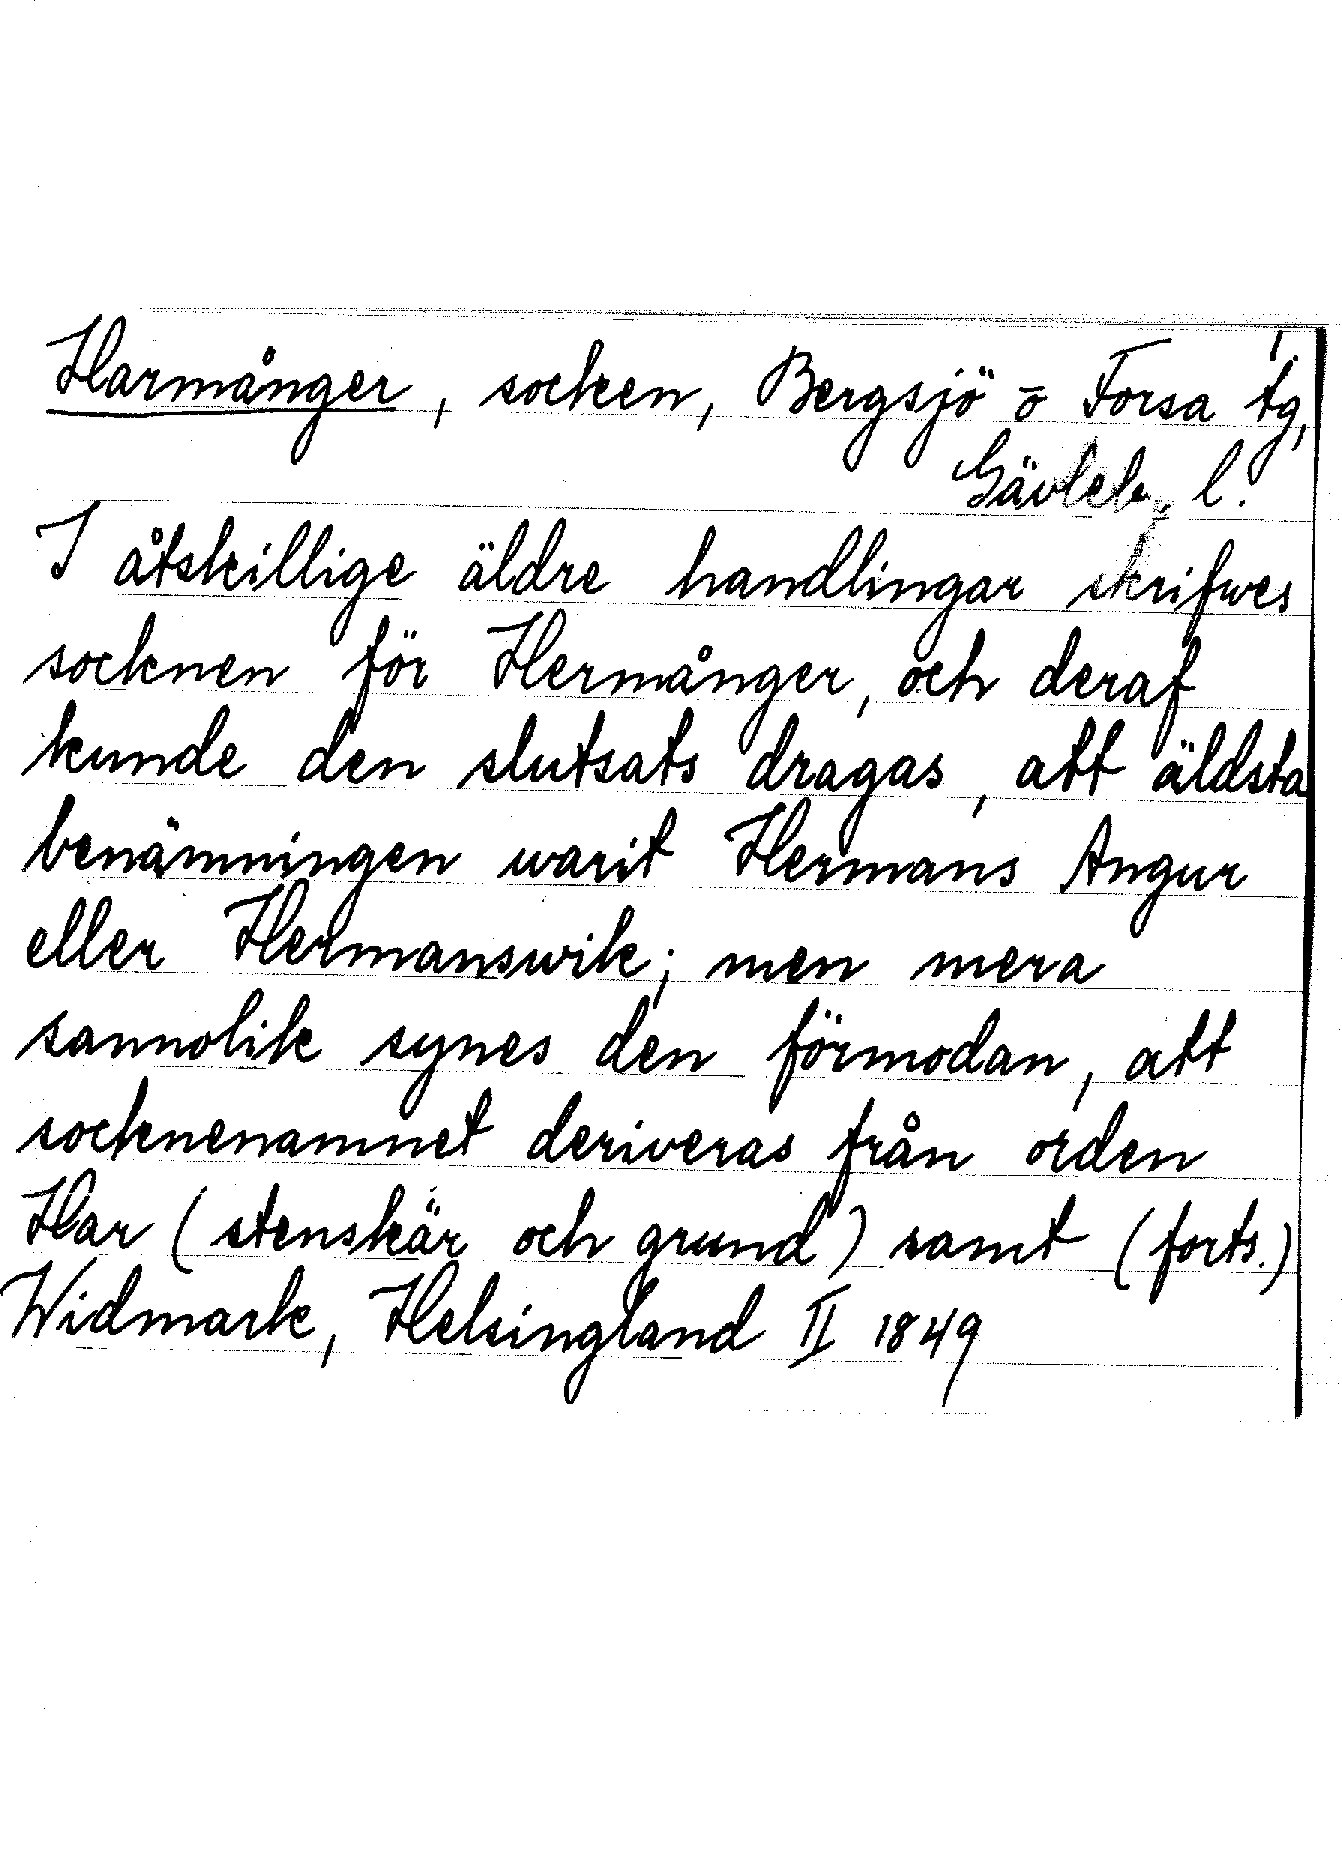 1
Harmånger, socken, Bergsjö o Forsa tg,
Gävleb. l.
I åtskillige äldre handlingar skrifwes
socknen för Hermånger, och deraf
kunde den slutsats dragas, att äldsta
benämningen warit Hermans Angur
eller Hermanswik; men mera
sannolik synes den förmodan, att
socknenamnet deriveras från orden
Har (stenskär och grund) samt (forts.)
Widmark, Helsingland II 1849